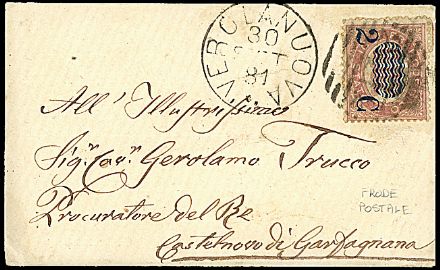 VEROLANUOVA
30
81
2 C
All' Illustrissimo
Sig.r Cav.r Gerolamo Trucco
Procuratore del Re
Castelnovo di Garfagnana
FRODE
POSTALE